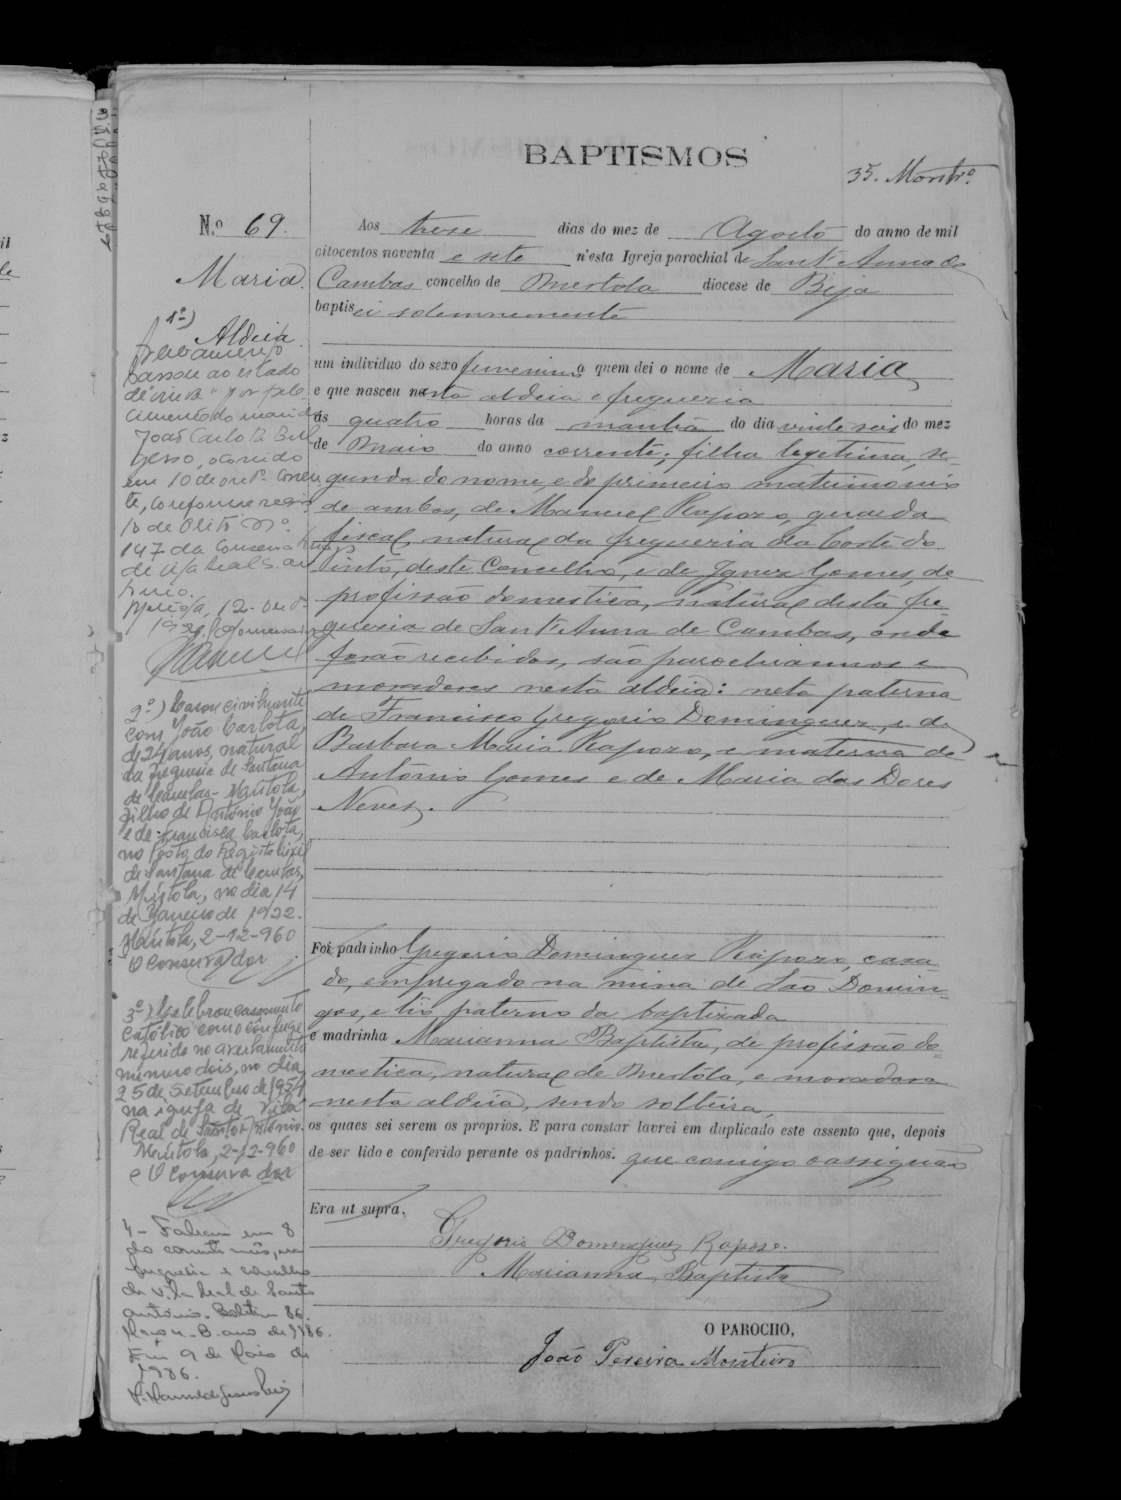 BAPTISMOS
35. Montrº.
N.º 69.
Maria.
Aldeia.
Aos trese dias do mez de Agosto do anno de mil
oitocentos noventa e sete n'esta Igreja parochial de Sant'Anna de
Cambas concelho de Mertola diocese de Beja
baptisei solemnemente
um individuo do sexo femenino a quem dei o nome de Maria
e que nasceu nesta aldeia e freguezia
ás quatro horas da manhã do dia vinte seis do mez
de Maio do anno corrente; filha legetima, se-
gunda do nome, e do primeiro matrimonio
de ambos, de Manuel Rapozo, guarda
fiscal, natural da freguezia da Corte do
Pinto, deste Concelho, e de Ignez Gomes, de
profissão domestica, natural desta fre-
guezia de Sant'Anna de Cambas, onde
forão recebidos, são parochiannos e
moradores nesta aldeia: neta paterna
de Francisco Gregorio Dominguez, e de
Barbara Maria Rapozo, e materna de
Antonio Gomes e de Maria das Dores
Neves.
Foi padrinho Gregorio Dominguez Rapozo, casa-
do, empregado na mina de São Domin-
gos, e tio paterno da baptizada
e madrinha Marianna Baptista, de profissão do-
mestica, natural de Mertola, e moradora
nesta aldeia, sendo solteira,
os quaes sei serem os proprios. E para constar lavrei em duplicado este assento que, depois
de ser lido e conferido perante os padrinhos. que comigo assignão
Era ut supra.
Gregorio Dominguez Raposo.
Marianna Baptista
O PAROCHO,
João Pereira Monteiro
1º)
passou ao estado
de viuva por fale
cimento do marido
João Carlota
ocorrido
em 10 de
147 da
2º) Casou civilmente
com João Carlota,
de 24 anos, natural
da freguesia de Santana
de Cambas - Mértola,
filho de António João
e de Francisca Carlota,
no Posto do Registo Civil
de Santana de Cambas,
Mértola, no dia 14
de Janeiro de 1922.
Mértola, 2-12-960
O Conservador
3º) Celebrou casamento
Católico com o cônjuge
referido no averbamento
número dois, no dia
25 de Setembro de 1954
na igreja de Vila
Real de Santo António.
Mértola, 2-12-960
O Conservador
4 - Faleceu em 8
do corrente mês, na
freguesia e concelho
de Vila Real de Santo
António. Boletim 86.
Maço 4-B ano de 1986.
Em 9 de Maio de
1986.